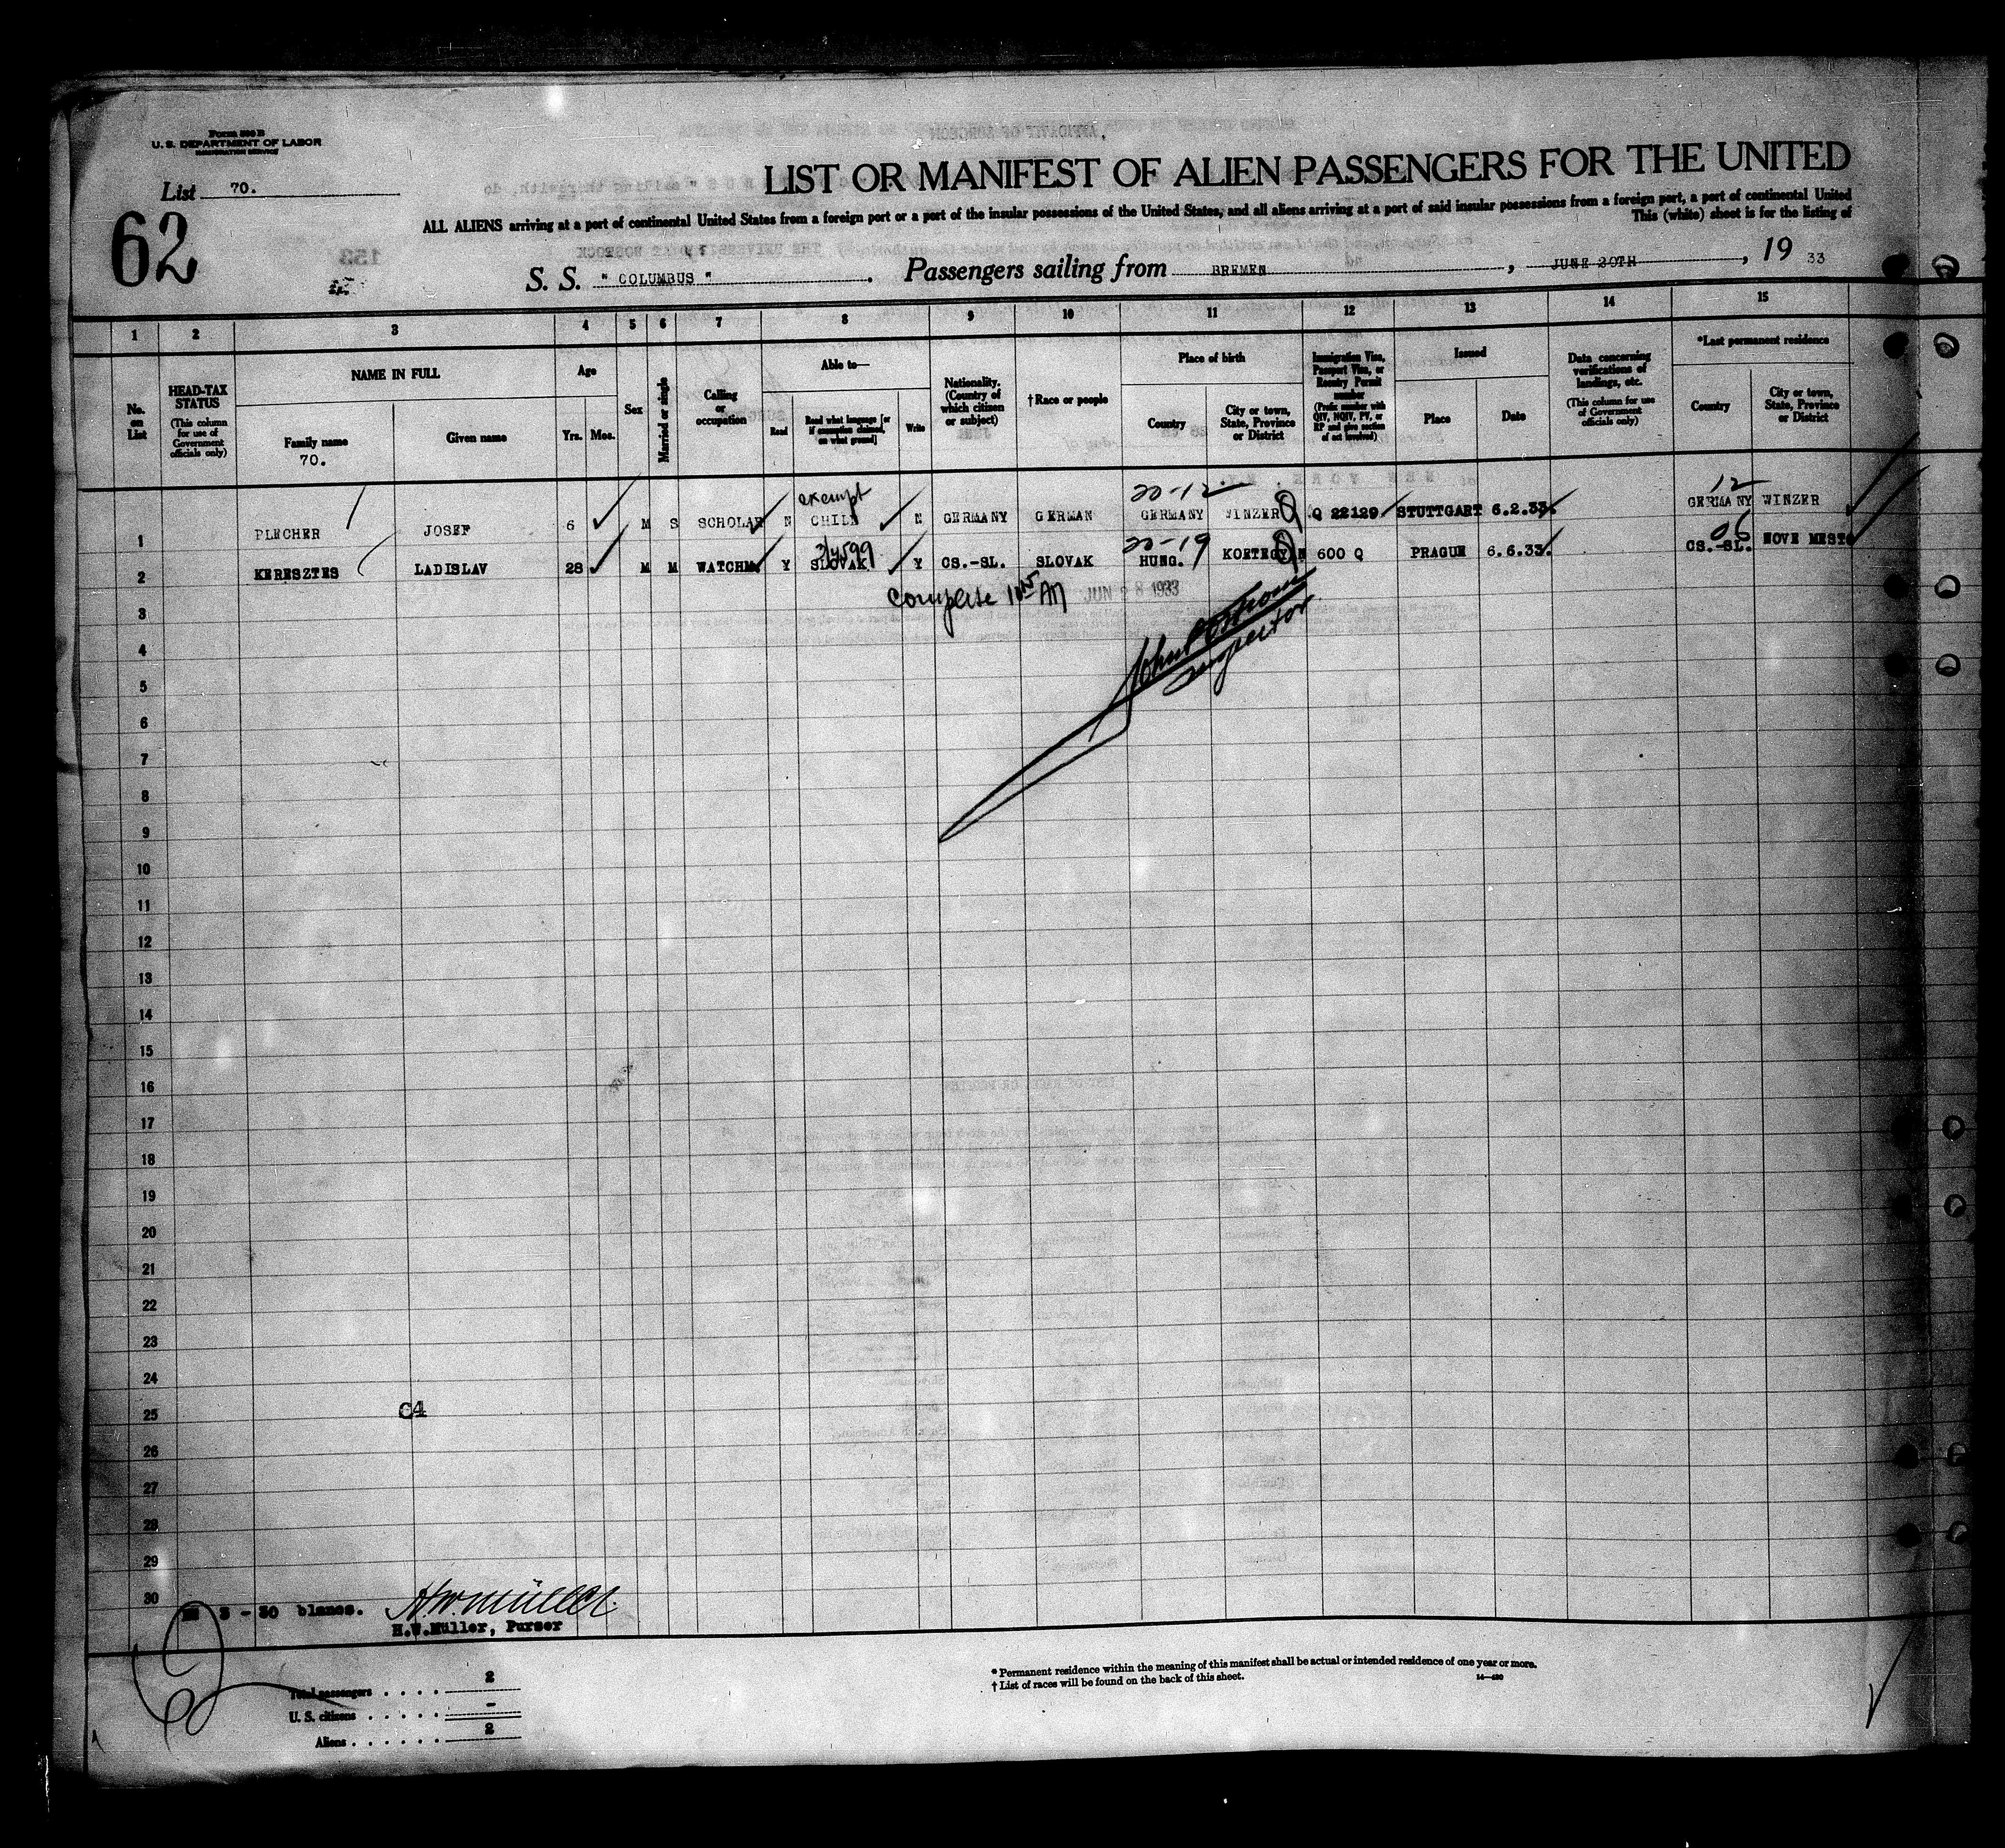 Form 500 B
U. S. DEPARTMENT OF LABOR
IMMIGRATION SERVICE
List 70.
62
LIST OR MANIFEST OF ALIEN PASSENGERS FOR THE UNITED
ALL ALIENS arriving at a port of continental United States from a foreign port or a port of the insular possessions of the United States, and all aliens arriving at a port of said insular possessions from a foreign port, a port of continental United
This (white) sheet is for the listing of
S. S. "COLUMBUS". Passengers sailing from BREMEN, JUNE 20TH, 19 33
1 2 3 4 5 6 7 8 9 10 11 12 13 14 15
No. on List
HEAD-TAX STATUS (This column for use of Government officials only)
NAME IN FULL
Family name
70.
Given name
Age
Yrs. Mos.
Sex
Married or single
Calling or occupation
Able to—
Read
Read what language [or if exemption claimed, on what ground]
Write
Nationality. (Country of which citizen or subject)
†Race or people
Place of birth
Country
City or town, State, Province or District
Immigration Visa, Passport Visa, or Reentry Permit number (Prefix number with QIV, NQIV, PV, or RP and give section of act involved)
Issued
Place
Date
Data concerning verifications of landings, etc. (This column for use of Government officials only)
*Last permanent residence
Country
City or town, State, Province or District
exempt 20-12 12
1 PLECHER JOSEF 6 M S SCHOLAR N CHILD N GERMANY GERMAN GERMANY WINZER Q 22129 STUTTGART 6.2.33. GERMANY WINZER
20-19 06
2 KERESZTES LADISLAV 28 M M WATCHM. Y SLOVAK Y CS.-SL. SLOVAK HUNG. 600 Q PRAGUE 6.6.33. CS.-SL. NOVE MESTO
JUN 28 1933
Inspector
3
4
5
6
7
8
9
10
11
12
13
14
15
16
17
18
19
20
21
22
23
24
25
C4
26
27
28
29
30
3 - 30 blancs. H.W. Müller
H.W.Müller, Purser
Total passengers . . . . 2
U. S. citizens . . . . . -
Aliens . . . . . . 2
* Permanent residence within the meaning of this manifest shall be actual or intended residence of one year or more.
† List of races will be found on the back of this sheet.